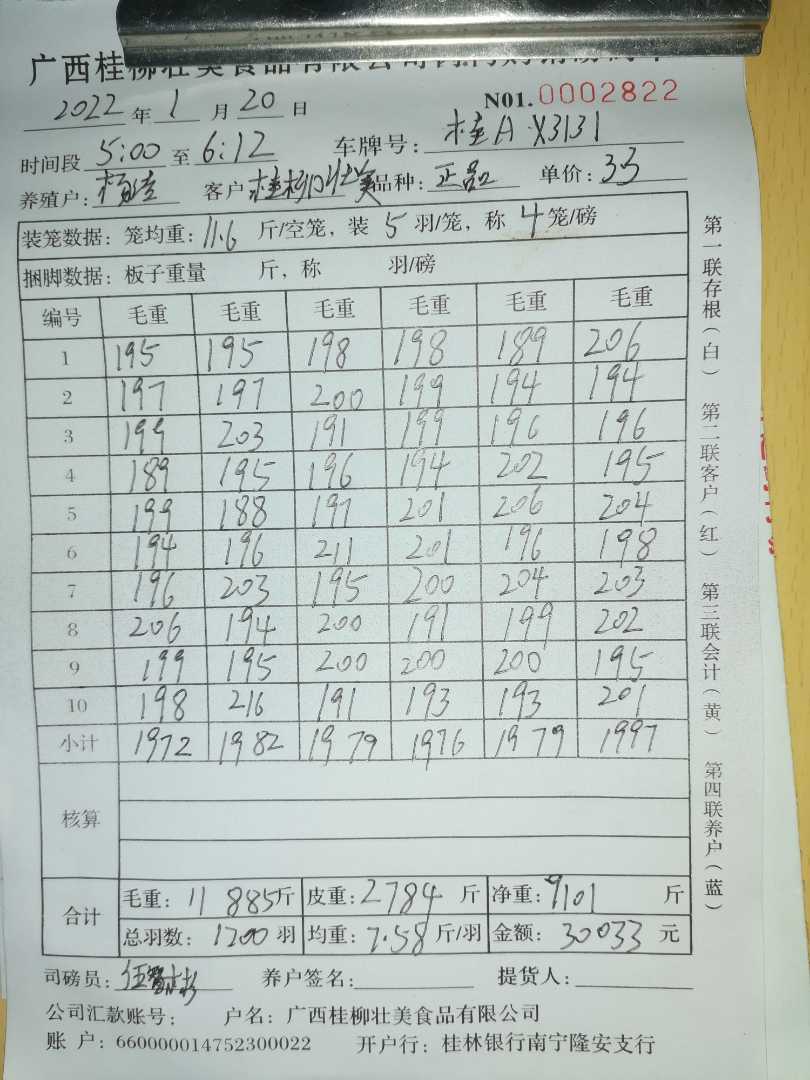 广西桂柳壮美食品有限公司
2022 年 1 月 20 日 N01. 0002822
时间段 5:00 至 6:12 车牌号: 桂A X3131
养殖户: 客户: 桂柳壮美 品种: 正品 单价: 33
装笼数据: 笼均重: 11.6 斤/空笼, 装 5 羽/笼, 称 4 笼/磅
捆脚数据: 板子重量 斤, 称 羽/磅
编号 毛重 毛重 毛重 毛重 毛重 毛重
1 195 195 198 198 189 206
2 197 197 200 199 194 194
3 199 203 191 199 196 196
4 189 195 196 194 202 195
5 199 188 197 201 206 204
6 194 196 211 201 196 198
7 196 203 195 200 204 203
8 206 194 200 191 199 202
9 199 195 200 200 200 195
10 198 216 191 193 193 201
小计 1972 1982 1979 1976 1979 1997
核算
合计 毛重: 11885斤 皮重: 2784 斤 净重: 9101 斤
总羽数: 1200 羽 均重: 7.58 斤/羽 金额: 30033 元
司磅员: 养户签名: 提货人:
公司汇款账号: 户名: 广西桂柳壮美食品有限公司
账 户: 660000014752300022 开户行: 桂林银行南宁隆安支行
第一联存根(白) 第二联客户(红) 第三联会计(黄) 第四联养户(蓝)